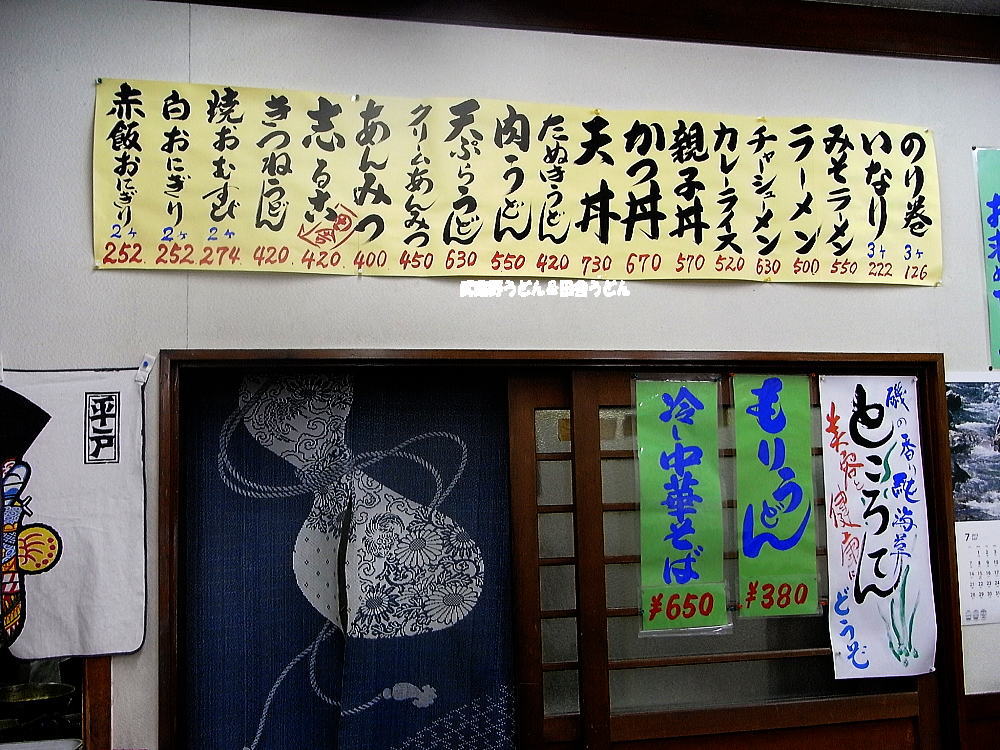 のり巻 3ヶ 126
いなり 3ヶ 222
みそラーメン 550
ラーメン 500
チャーシューメン 630
カレーライス 520
親子丼 570
かつ丼 670
天丼 730
たぬきうどん 420
肉うどん 550
天ぷらうどん 630
クリームあんみつ 450
あんみつ 400
志るこ 420
きつねうどん 420
焼おむすび 2ヶ 274
白おにぎり 2ヶ 252
赤飯おにぎり 2ヶ 252
野うどん&田舎うどん
平戸
冷し中華そば
¥650
もりうどん
¥380
磯の香り純海草
ところてん
美容と健康に
どうぞ
7